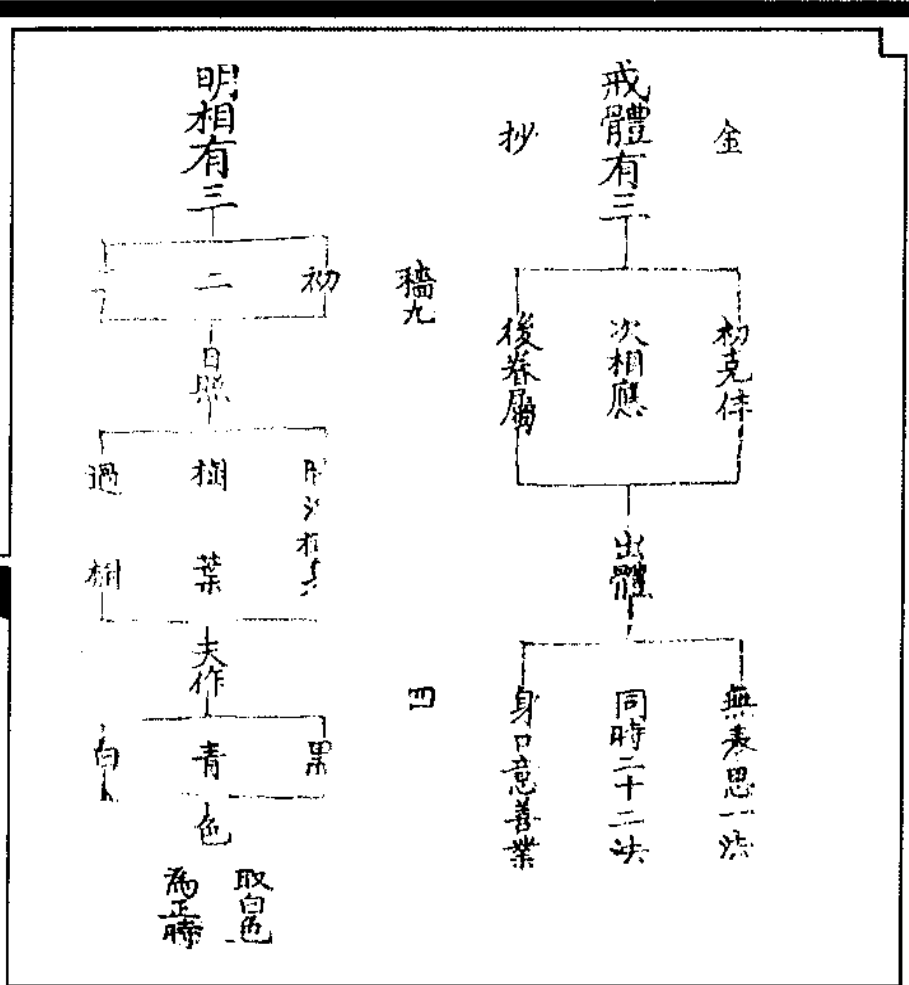 金
戒體有三
抄
初克体
次相應
後眷屬
出體
無表思一法
同時二十二法
身口意善業
墻九
四
明相有三
初
二
日照
樹
葉
過
樹
夫作
黑
青
白
色
取白色
為正時